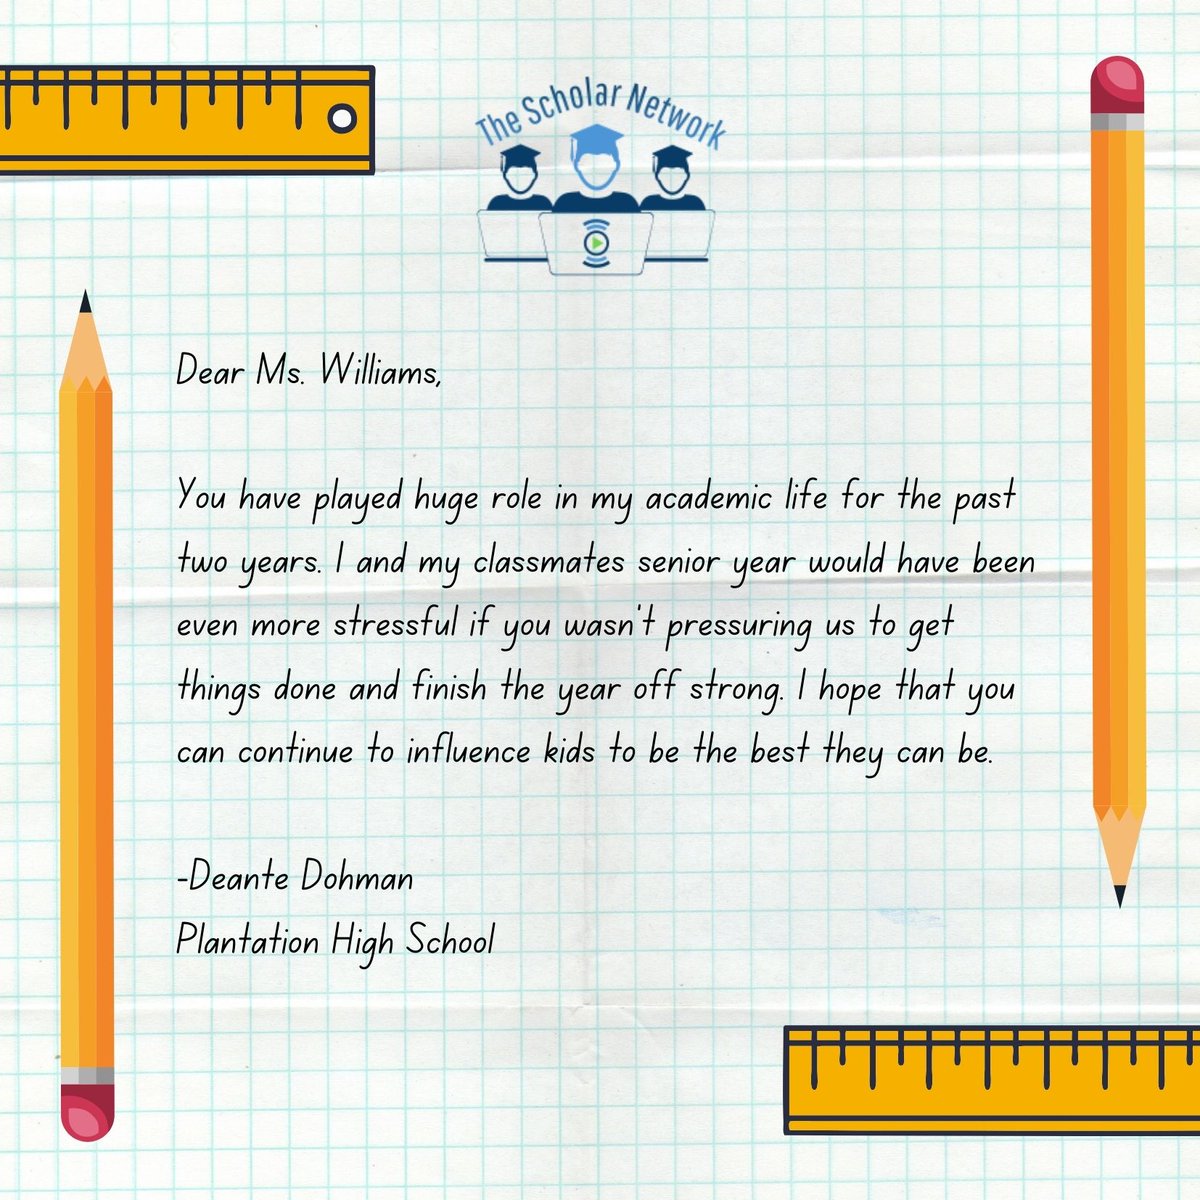 The Scholar Network
Dear Ms. Williams,
You have played huge role in my academic life for the past
two years. I and my classmates senior year would have been
even more stressful if you wasn't pressuring us to get
things done and finish the year off strong. I hope that you
can continue to influence kids to be the best they can be.
-Deante Dohman
Plantation High School